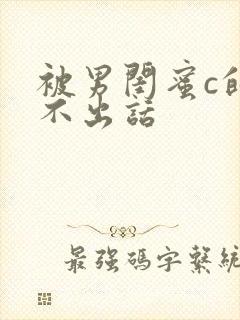 被男閨蜜c的
不出話
最強碼字繫統